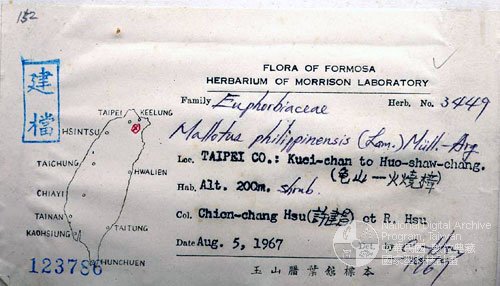 152
FLORA OF FORMOSA
HERBARIUM OF MORRISON LABORATORY
建檔
Family Euphorbiaceae Herb. No. 3449
Mallotus philippinensis (Lam.) Müll.-Arg.
Loc. TAIPEI CO.: Kuei-chan to Huo-shaw-chang.
(龟山—火燒樟)
Hab. Alt. 200m. shrub.
Col. Chion-chang Hsu (許建昌) et R. Hsu
Date Aug. 5, 1967 Det. by C. Hsu
1967
TAIPEI
KEELUNG
HSINTSU
TAICHUNG
HWALIEN
CHIAYI
TAINAN
TAITUNG
KAOHSIUNG
HUNCHUEN
123786
玉山腊葉舘標本
National Digital Archive
Program, Taiwan